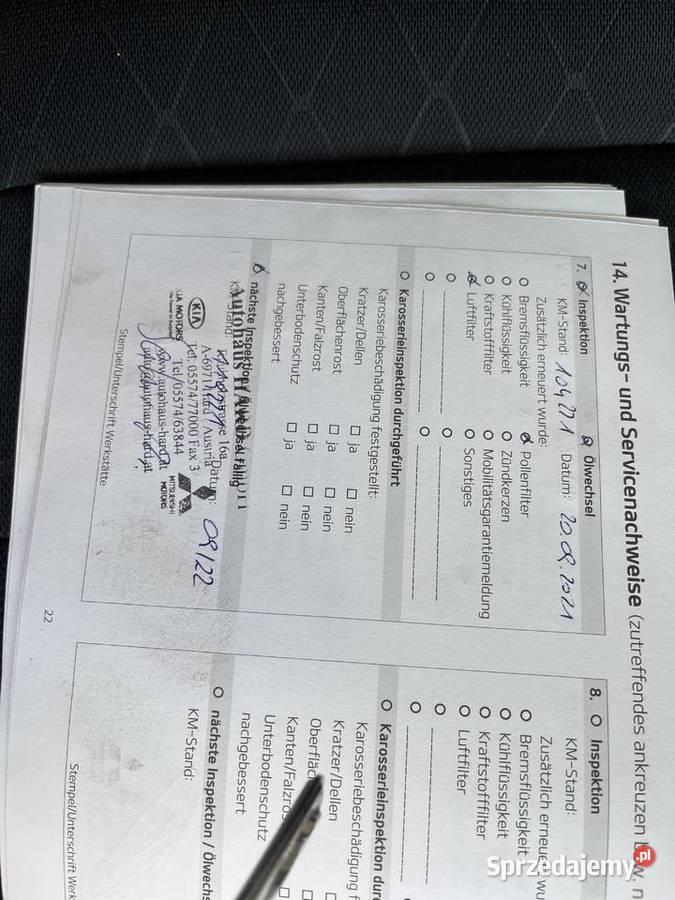 14. Wartungs- und Servicenachweise (zutreffendes ankreuzen
7. Inspektion Ölwechsel
KM-Stand: 104771 Datum: 20.09.2021
Zusätzlich erneuert wurde:
Bremsflüssigkeit Pollenfilter
Kühlflüssigkeit Zündkerzen
Kraftstofffilter Mobilitätsgarantiemeldung
Luftfilter Sonstiges
Karosserieinspektion durchgeführt
Karosseriebeschädigung festgestellt:
Kratzer/Dellen ja nein
Oberflächenrost ja nein
Kanten/Falzrost ja nein
Unterbodenschutz ja nein
nachgebessert
nächste Inspektion / fällig
Autohaus
Datum: 09/22
16a
A-6971 Hard / Austria
Tel. 05574/77000 Fax 3
KIA
KIA MOTORS
Tel/05574/63844
www.autohaus-hard.at
MITSUBISHI
MOTORS
Stempel/Unterschrift Werkstätte
22
8. Inspektion
KM-Stand:
Zusätzlich erneuert wu
Bremsflüssigkeit
Kühlflüssigkeit
Kraftstofffilter
Luftfilter
Karosserieinspektion dur
Karosseriebeschädigung f
Kratzer/Dellen
Oberfläc
Kanten/Falzros
Unterbodenschutz
nachgebessert
nächste Inspektion / Ölwechs
KM-Stand:
Stempel/Unterschrift Werk
Sprzedajemy.pl